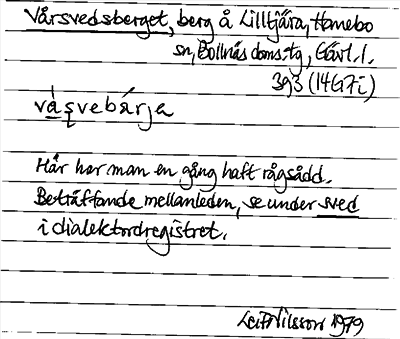 Vårsvedsberget, berg å Lilltjära, Hanebo
sn, Bollnäs doms:tg, Gävl. l.
3g3 (14G7i)
vȧsvebárja
Här har man en gång haft rågsådd.
Beträffande mellanleden, se under sved
i dialektordregistret.
Leif Nilsson 1979